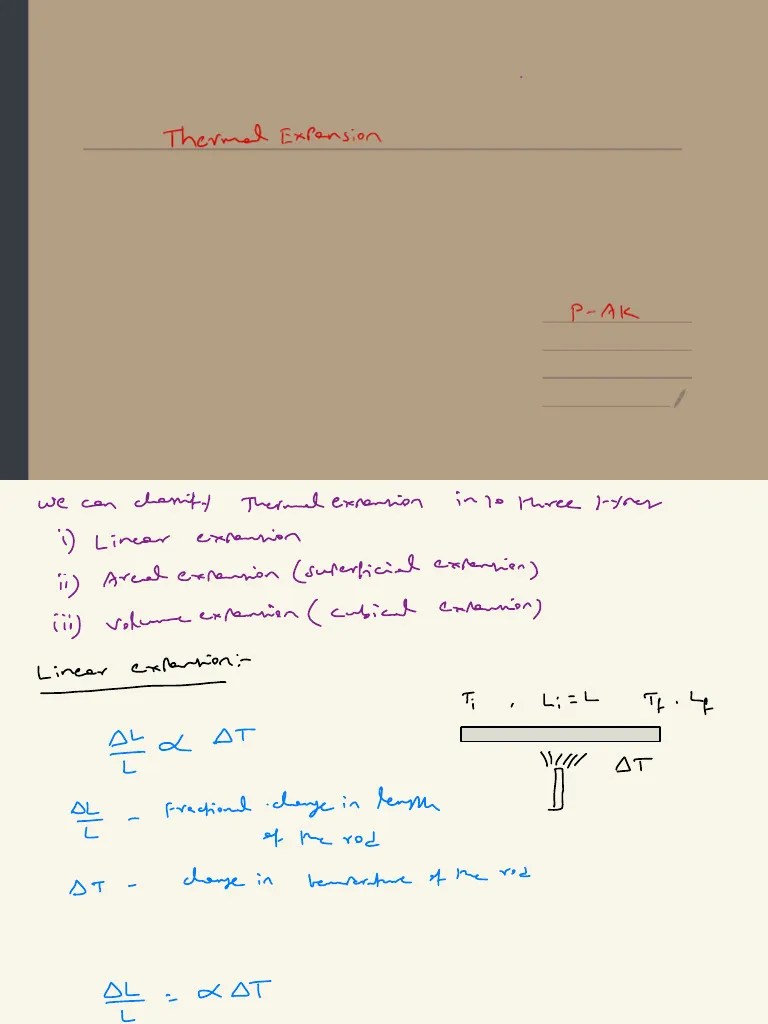 Thermal Expansion
P-AK
We can classify Thermal expansion in to three types
i) Linear expansion
ii) Areal expansion (superficial expansion)
iii) volume expansion ( cubical expansion)
Linear expansion:-
Ti , Li = L Tf . Lf
ΔL/L ∝ ΔT
ΔT
ΔL/L - Fractional change in length
of the rod
ΔT - change in temperature of the rod
ΔL/L = ∝ ΔT